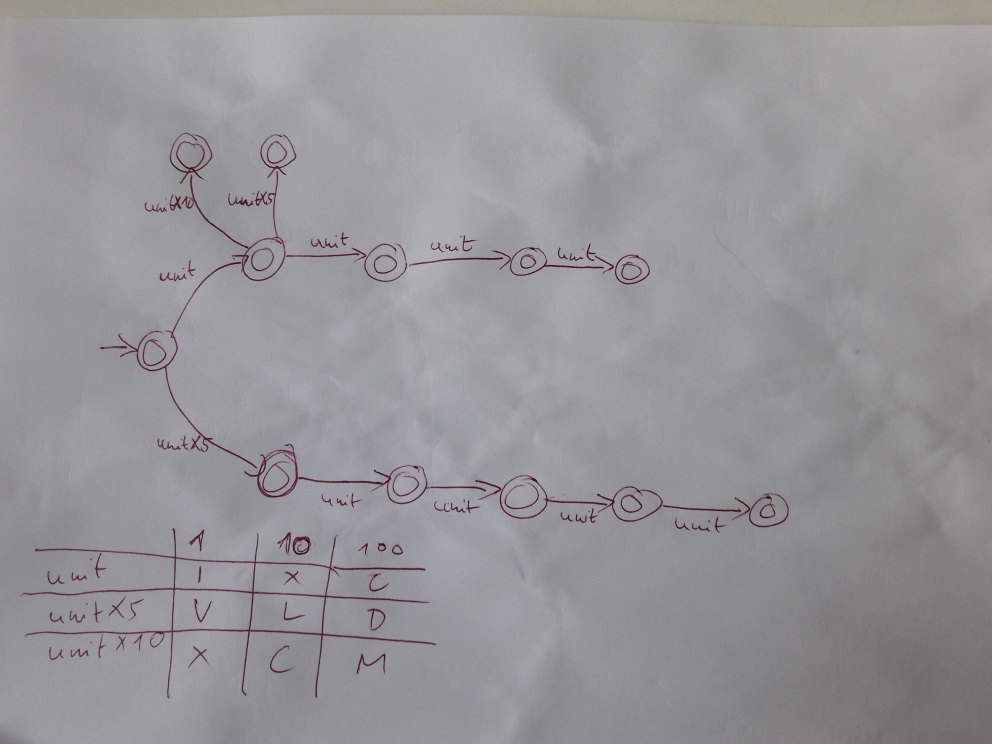 unitX10 unitX5
unit unit unit
unit
unitX5
unit unit unit unit
1 10 100
unit I X C
unitX5 V L D
unitX10 X C M